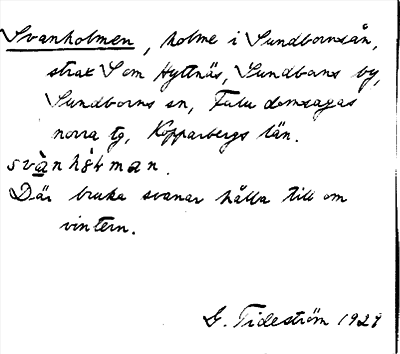 Svanholmen, holme i Sundbornsån,
strax S om Hyttnäs, Sundborns by,
Sundborns sn, Falu domsagas
norra tg, Kopparbergs län.
svànhòlman.
Där bruka svanar hålla till om
vintern.
G. Tideström 1929